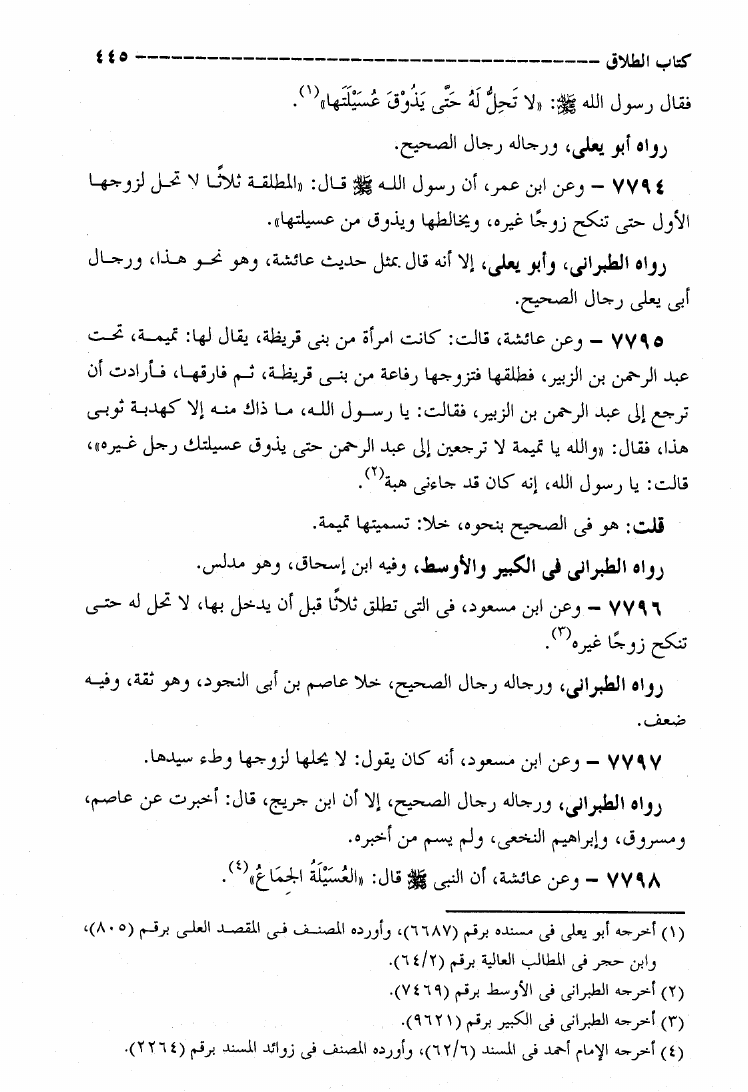 كتاب الطلاق -------------------------------------- ٤٤٥
فقال رسول الله ﷺ: «لا تَحِلُّ لَهُ حَتَّى يَذُوْقَ عُسَيْلَتَها»(١).
رواه أبو يعلى، ورجاله رجال الصحيح.
٧٧٩٤ – وعن ابن عمر، أن رسول اللـه ﷺ قـال: «المطلقـة ثلاثًـا لا تحـل لزوجهـا
الأول حتى تنكح زوجًا غيره، ويخالطها ويذوق من عسيلتها».
رواه الطبرانى، وأبو يعلى، إلا أنه قال بمثل حديث عائشة، وهو نحـو هـذا، ورجـال
أبى يعلى رجال الصحيح.
٧٧٩٥ – وعن عائشة، قالت: كانت امرأة من بنى قريظة، يقال لها: تميمـة، تحـت
عبد الرحمن بن الزبير، فطلقها فتزوجها رفاعة من بنـى قريظـة، ثـم فارقهـا، فـأرادت أن
ترجع إلى عبد الرحمن بن الزبير، فقالت: يا رسـول اللـه، مـا ذاك منـه إلا كهدبـة ثوبـى
هذا، فقال: «والله يا تميمة لا ترجعين إلى عبد الرحمن حتى يذوق عسيلتك رجل غـيره»،
قالت: يا رسول الله، إنه كان قد جاءنى هبة(٢).
قلت: هو فى الصحيح بنحوه، خلا: تسميتها تميمة.
رواه الطبرانى فى الكبير والأوسط، وفيه ابن إسحاق، وهو مدلس.
٧٧٩٦ – وعن ابن مسعود، فى التى تطلق ثلاثًا قبل أن يدخل بها، لا تحل له حتـى
تنكح زوجًا غيره(٣).
رواه الطبرانى، ورجاله رجال الصحيح، خلا عاصم بن أبى النجود، وهو ثقة، وفيـه
ضعف.
٧٧٩٧ – وعن ابن مسعود، أنه كان يقول: لا يحلها لزوجها وطء سيدها.
رواه الطبرانى، ورجاله رجال الصحيح، إلا أن ابن جريج، قال: أخبرت عن عاصم،
ومسروق، وإبراهيم النخعى، ولم يسم من أخبره.
٧٧٩٨ – وعن عائشة، أن النبى ﷺ قال: «العُسَيْلَةُ الجِمَاعُ»(٤).
(١) أخرجه أبو يعلى فى مسنده برقم (٦٦٨٧)، وأورده المصنـف فـى المقصـد العلـى برقـم (٨٠٥)،
وابن حجر فى المطالب العالية برقم (٦٤/٢).
(٢) أخرجه الطبرانى فى الأوسط برقم (٧٤٦٩).
(٣) أخرجه الطبرانى فى الكبير برقم (٩٦٢١).
(٤) أخرجه الإمام أحمد فى المسند (٦٢/٦)، وأورده المصنف فى زوائد المسند برقم (٢٢٦٤).